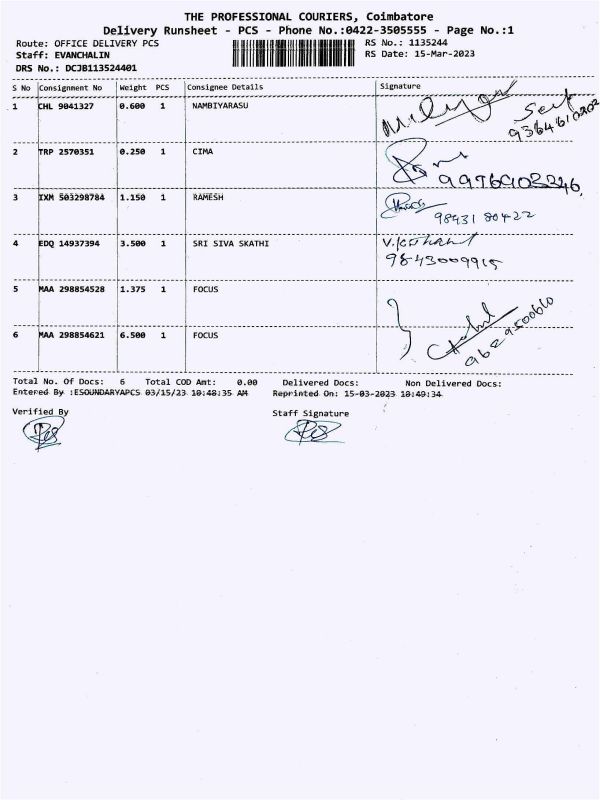 THE PROFESSIONAL COURIERS, Coimbatore
Delivery Runsheet - PCS - Phone No.:0422-3505555 - Page No.:1
Route: OFFICE DELIVERY PCS RS No.: 1135244
Staff: EVANCHALIN RS Date: 15-Mar-2023
DRS No.: DCJB113524401
S No Consignment No Weight PCS Consignee Details Signature
1 CHL 9041327 0.600 1 NAMBIYARASU
2 TRP 2570351 0.250 1 CIMA
3 IXM 503298784 1.150 1 RAMESH
98431 80422
4 EDQ 14937394 3.500 1 SRI SIVA SKATHI
9843009915
5 MAA 298854528 1.375 1 FOCUS
6 MAA 298854621 6.500 1 FOCUS
Total No. Of Docs: 6 Total COD Amt: 0.00 Delivered Docs: Non Delivered Docs:
Entered By :ESOUNDARYAPCS 03/15/23 10:48:35 AM Reprinted On: 15-03-2023 10:49:34
Verified By Staff Signature